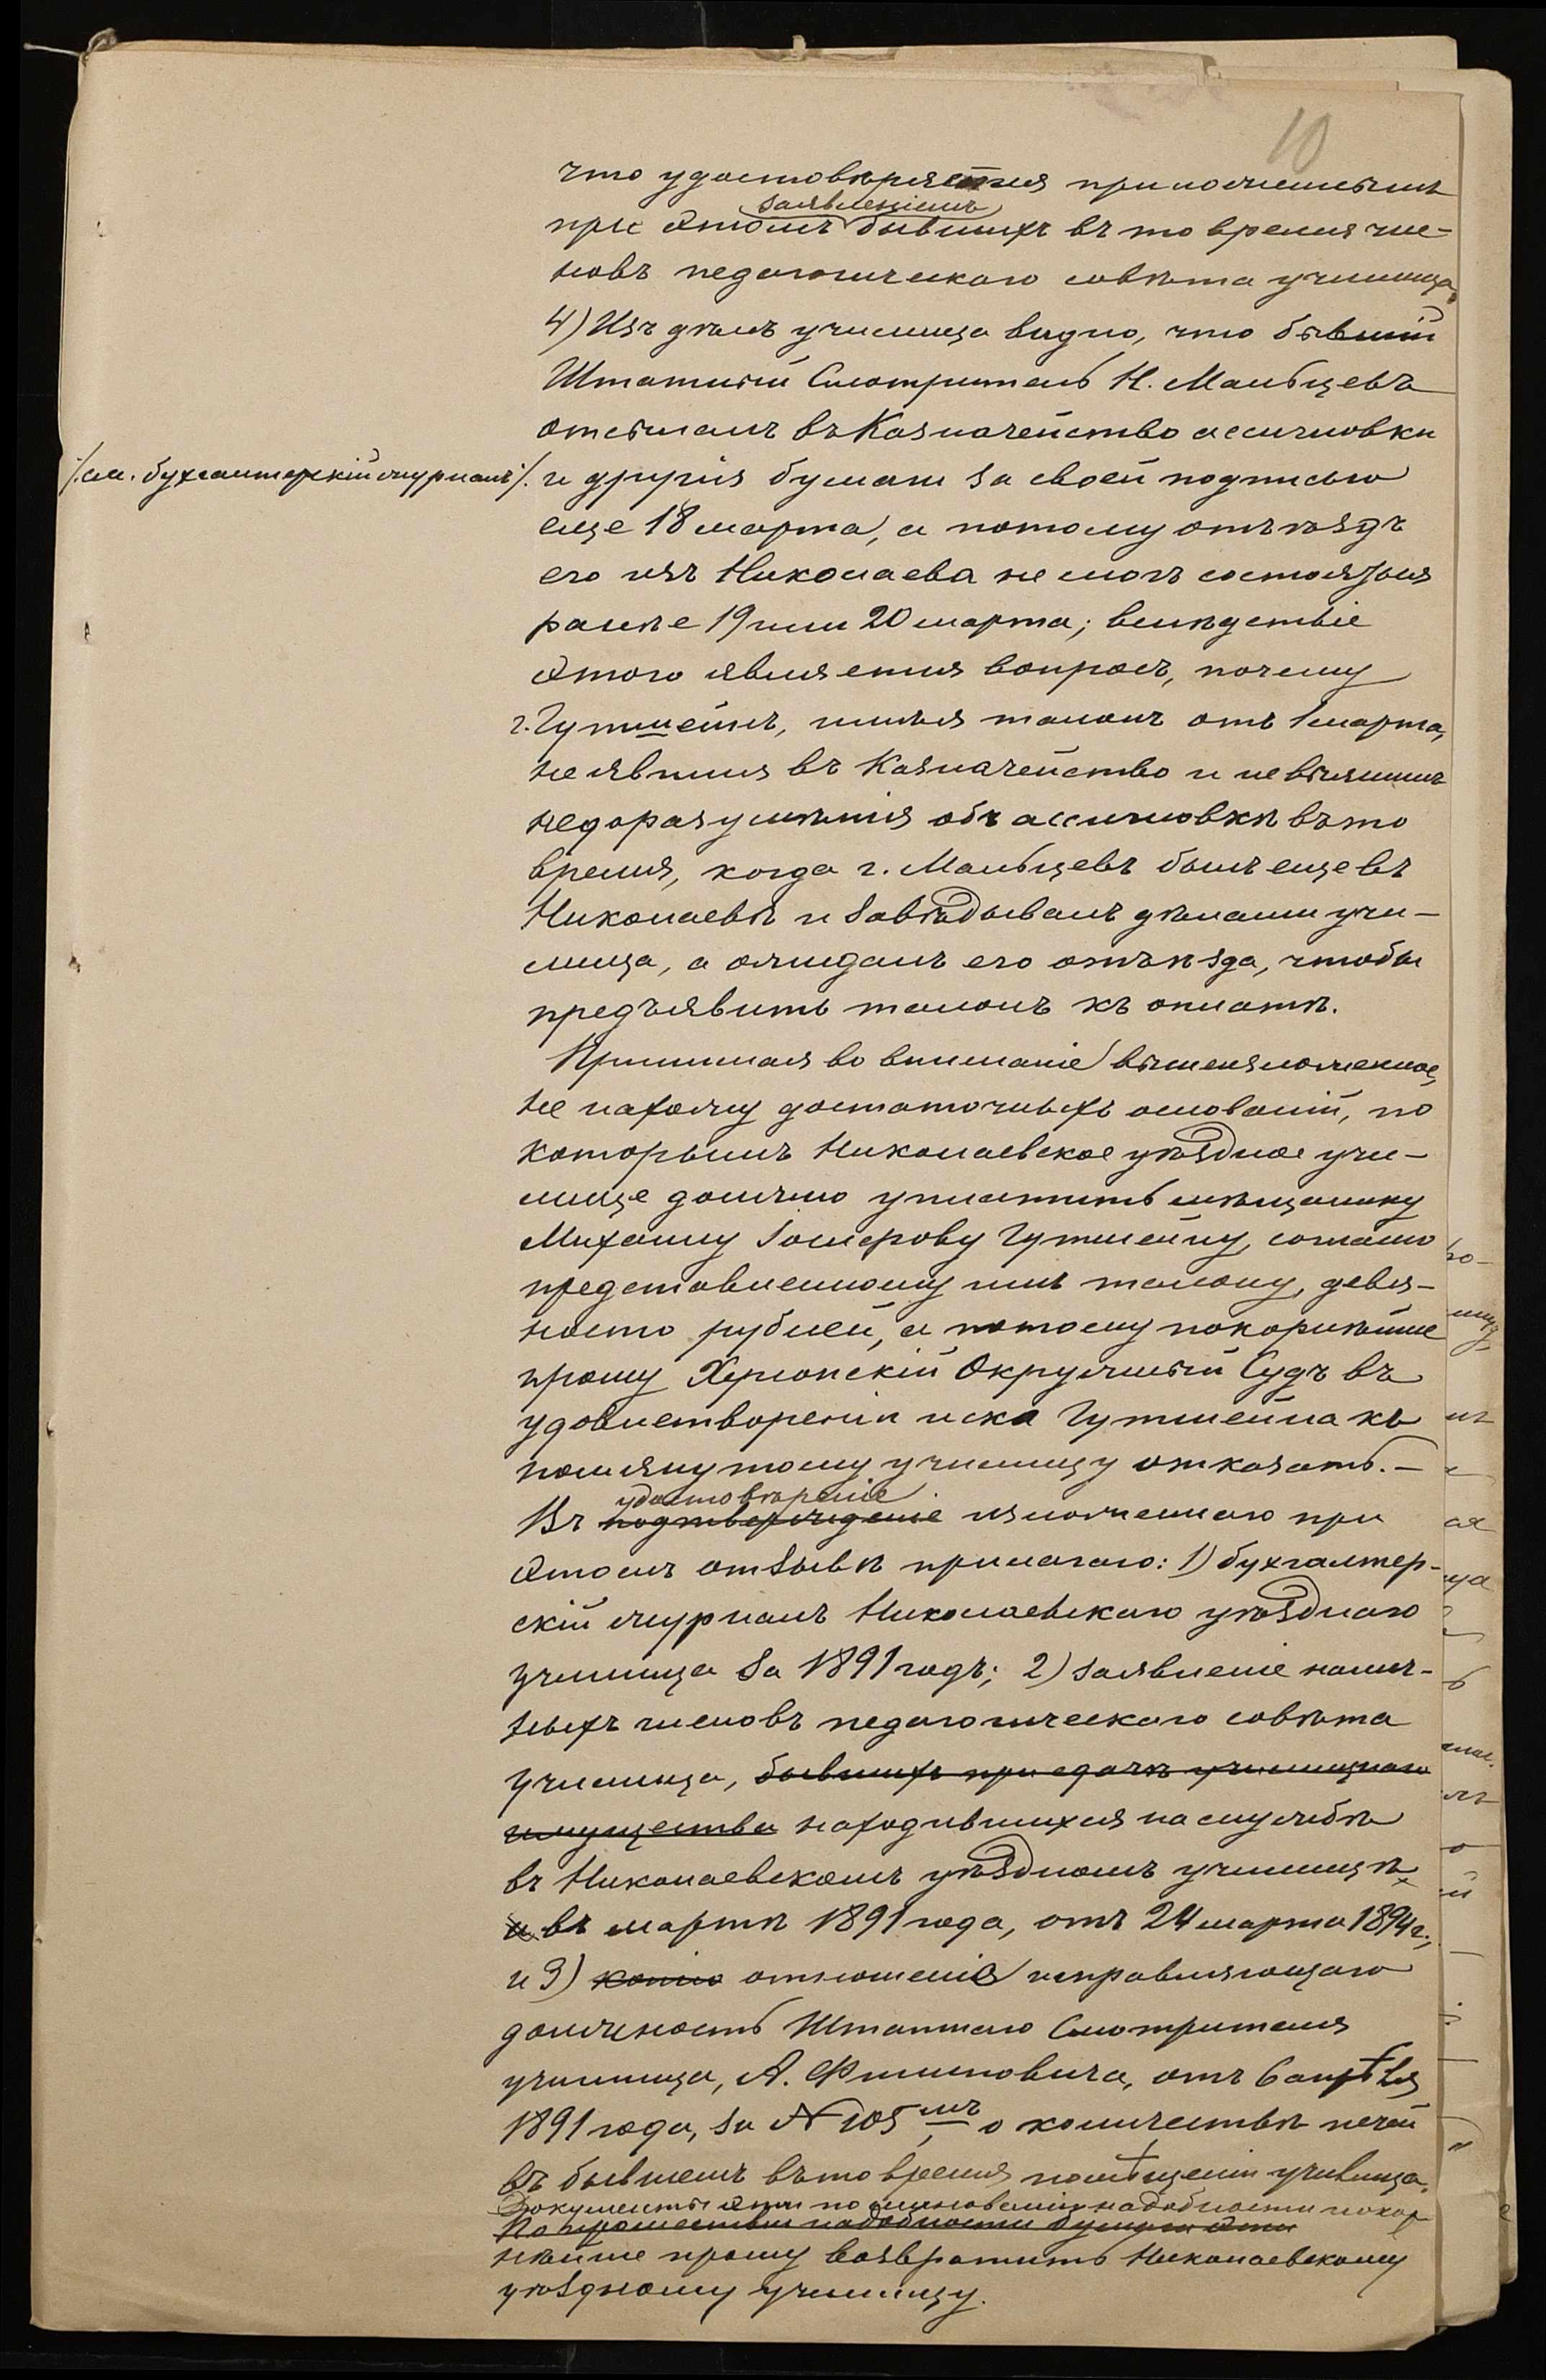 10
что удостовѣряется приложеннымъ
заявленіемъ
при этомъ бывшихъ въ то время чле-
новъ педагогическаго совѣта училища,
4) Изъ дѣлъ училища видно, что бывшій
Штатный Смотритель Н. Мальцевъ
отсылалъ въ Казначейство ассигновки
/см. бухгалтерскій журналъ/. и другія бумаги за своей подписью
еще 18 марта, а потому отъѣздъ
его изъ Николаева не могъ состояться
ранѣе 19 или 20 марта; вслѣдствіе
этого является вопросъ, почему
г. Гутшейнъ, имѣя талонъ отъ 1 марта,
не явился въ Казначейство и не выяснилъ
недоразумѣнія объ ассигновкѣ въ то
время, когда г. Мальцевъ былъ еще въ
Николаевѣ и завѣдывалъ дѣлами учи-
лища, а ожидалъ его отъѣзда, чтобы
предъявить талонъ къ оплатѣ.
Принимая во вниманіе вышеизложенное,
не нахожу достаточныхъ основаній, по
которымъ Николаевское уѣздное учи-
лище должно уплатить мѣщанину
Михаилу Гутшейну, согласно
представленному имъ талону, девя-
носто рублей, а потому покорнѣйше
прошу Херсонскій Окружный Судъ въ
удовлетвореніи иска Гутшейна къ
помянутому училищу отказать.—
удостовѣреніе
Въ подтвержденіе изложеннаго при
этомъ отзывѣ прилагаю: 1) бухгалтер-
скій журналъ Николаевскаго уѣзднаго
училища за 1891 годъ; 2) заявленіе налич-
ныхъ членовъ педагогическаго совѣта
училища, бывшихъ при сдачѣ училищнаго
имущества находившихся на службѣ
въ Николаевскомъ уѣздномъ училищѣ
и въ мартѣ 1891 года, отъ 24 марта 1894 г.,
и 3) копію отношенія исправляющаго
должность Штатнаго Смотрителя
училища, А. Филиповича, отъ 6 апрѣля
1891 года, за № 105мъ, о количествѣ печей
въ бывшемъ въ то время помѣщеніи училища.
Документы эти по минованіи надобности покор
По прошествіи надобности бумаги эти
нѣйше прошу возвратить Николаевскому
уѣздному училищу.